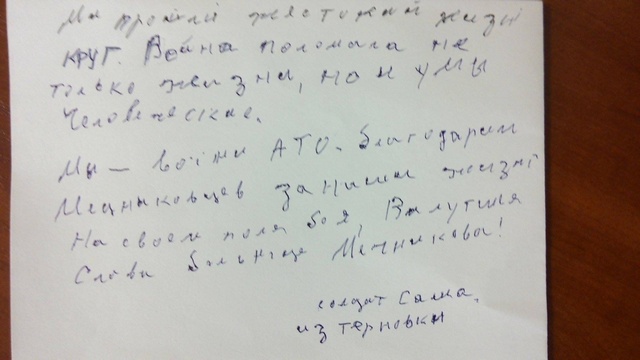 Мы прошли жестокий жизни
круг. Война поломала не
только жизни, но и умы
человеческие.
Мы — воїни АТО. Благодарим
Мечниковцев за наши жизні
На своем поле боя,
Слава больнице Мечникова!
солдат Саша,
из терновки